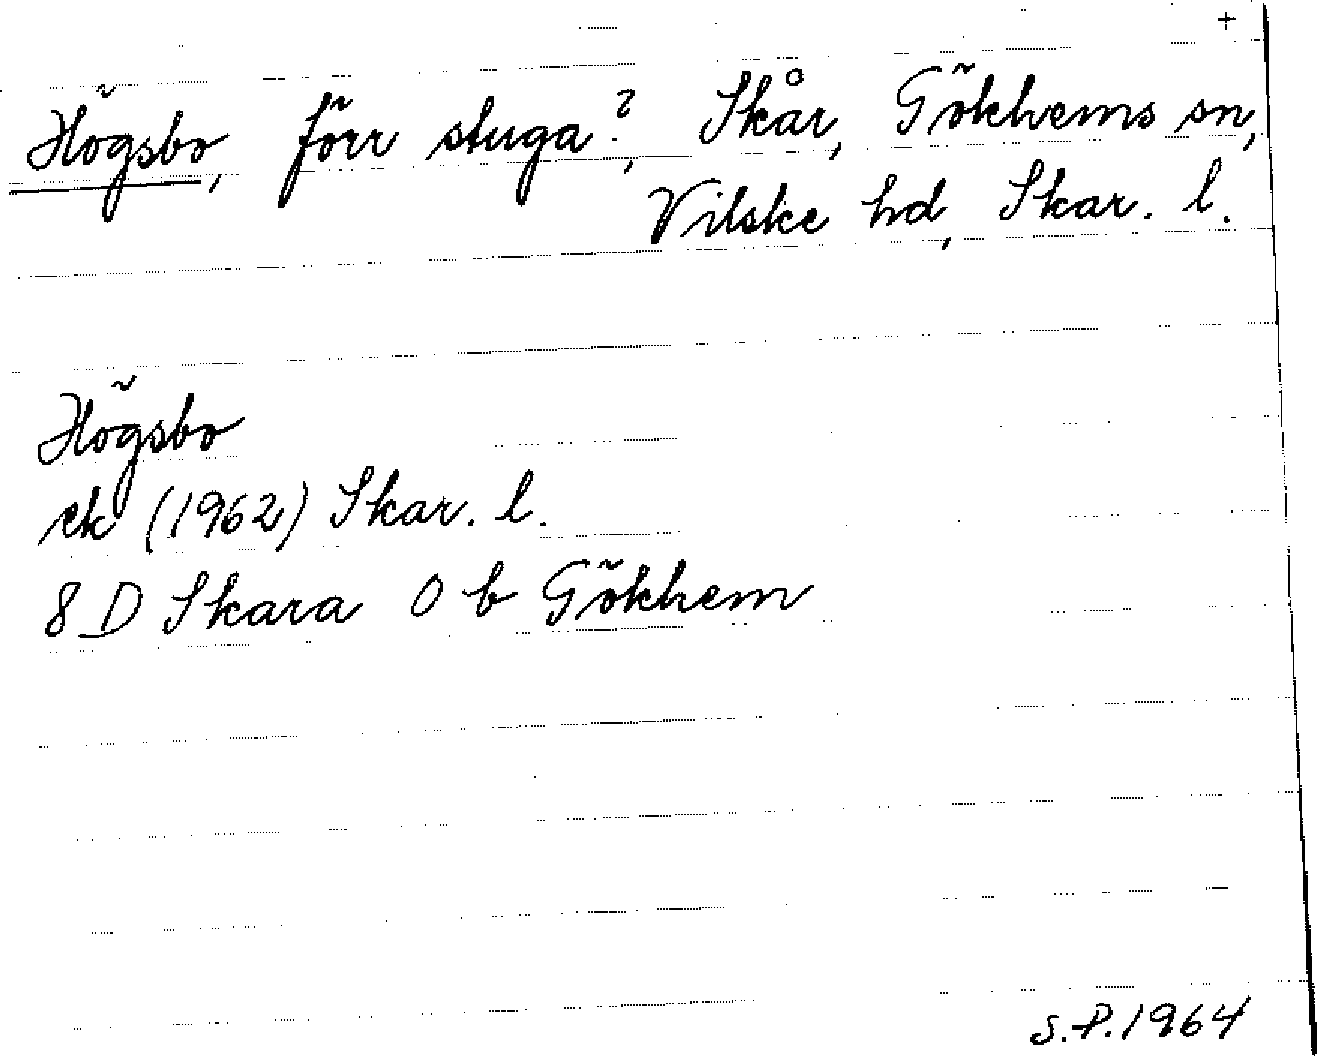 +
Högsbo, förr stuga?, Skår, Gökhems sn,
Vilske hd, Skar. l.
Högsbo
ek (1962) Skar. l.
8 D Skara 0 b Gökhem
S.P. 1964